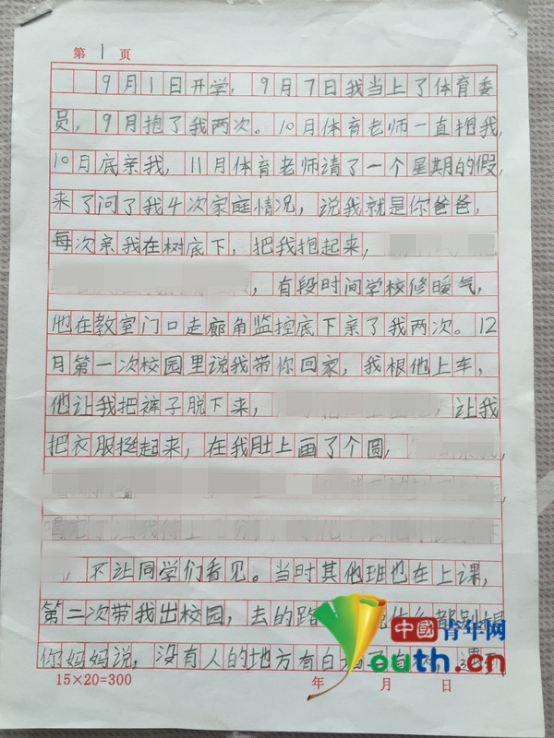 第 1 页
9月1日开学，9月7日我当上了体育委
员，9月抱了我两次。10月体育老师一直抱我，
10月底亲我，11月体育老师请了一个星期的假，
来了问了我4次家庭情况，说我就是你爸爸，
每次亲我在树底下，把我抱起来，
，有段时间学校修暖气，
他在教室门口走廊角监控底下亲了我两次。12
月第一次校园里说我带你回家，我根他上车，
他让我把裤子脱下来，让我
把衣服挺起来，在我肚上画了个圆，
不让同学们看见。当时其他班也在上课，
第二次带我出校园，去的路
你妈妈说，没有人的地方有白
中國青年网
Youth.cn
15×20=300 年 月 日